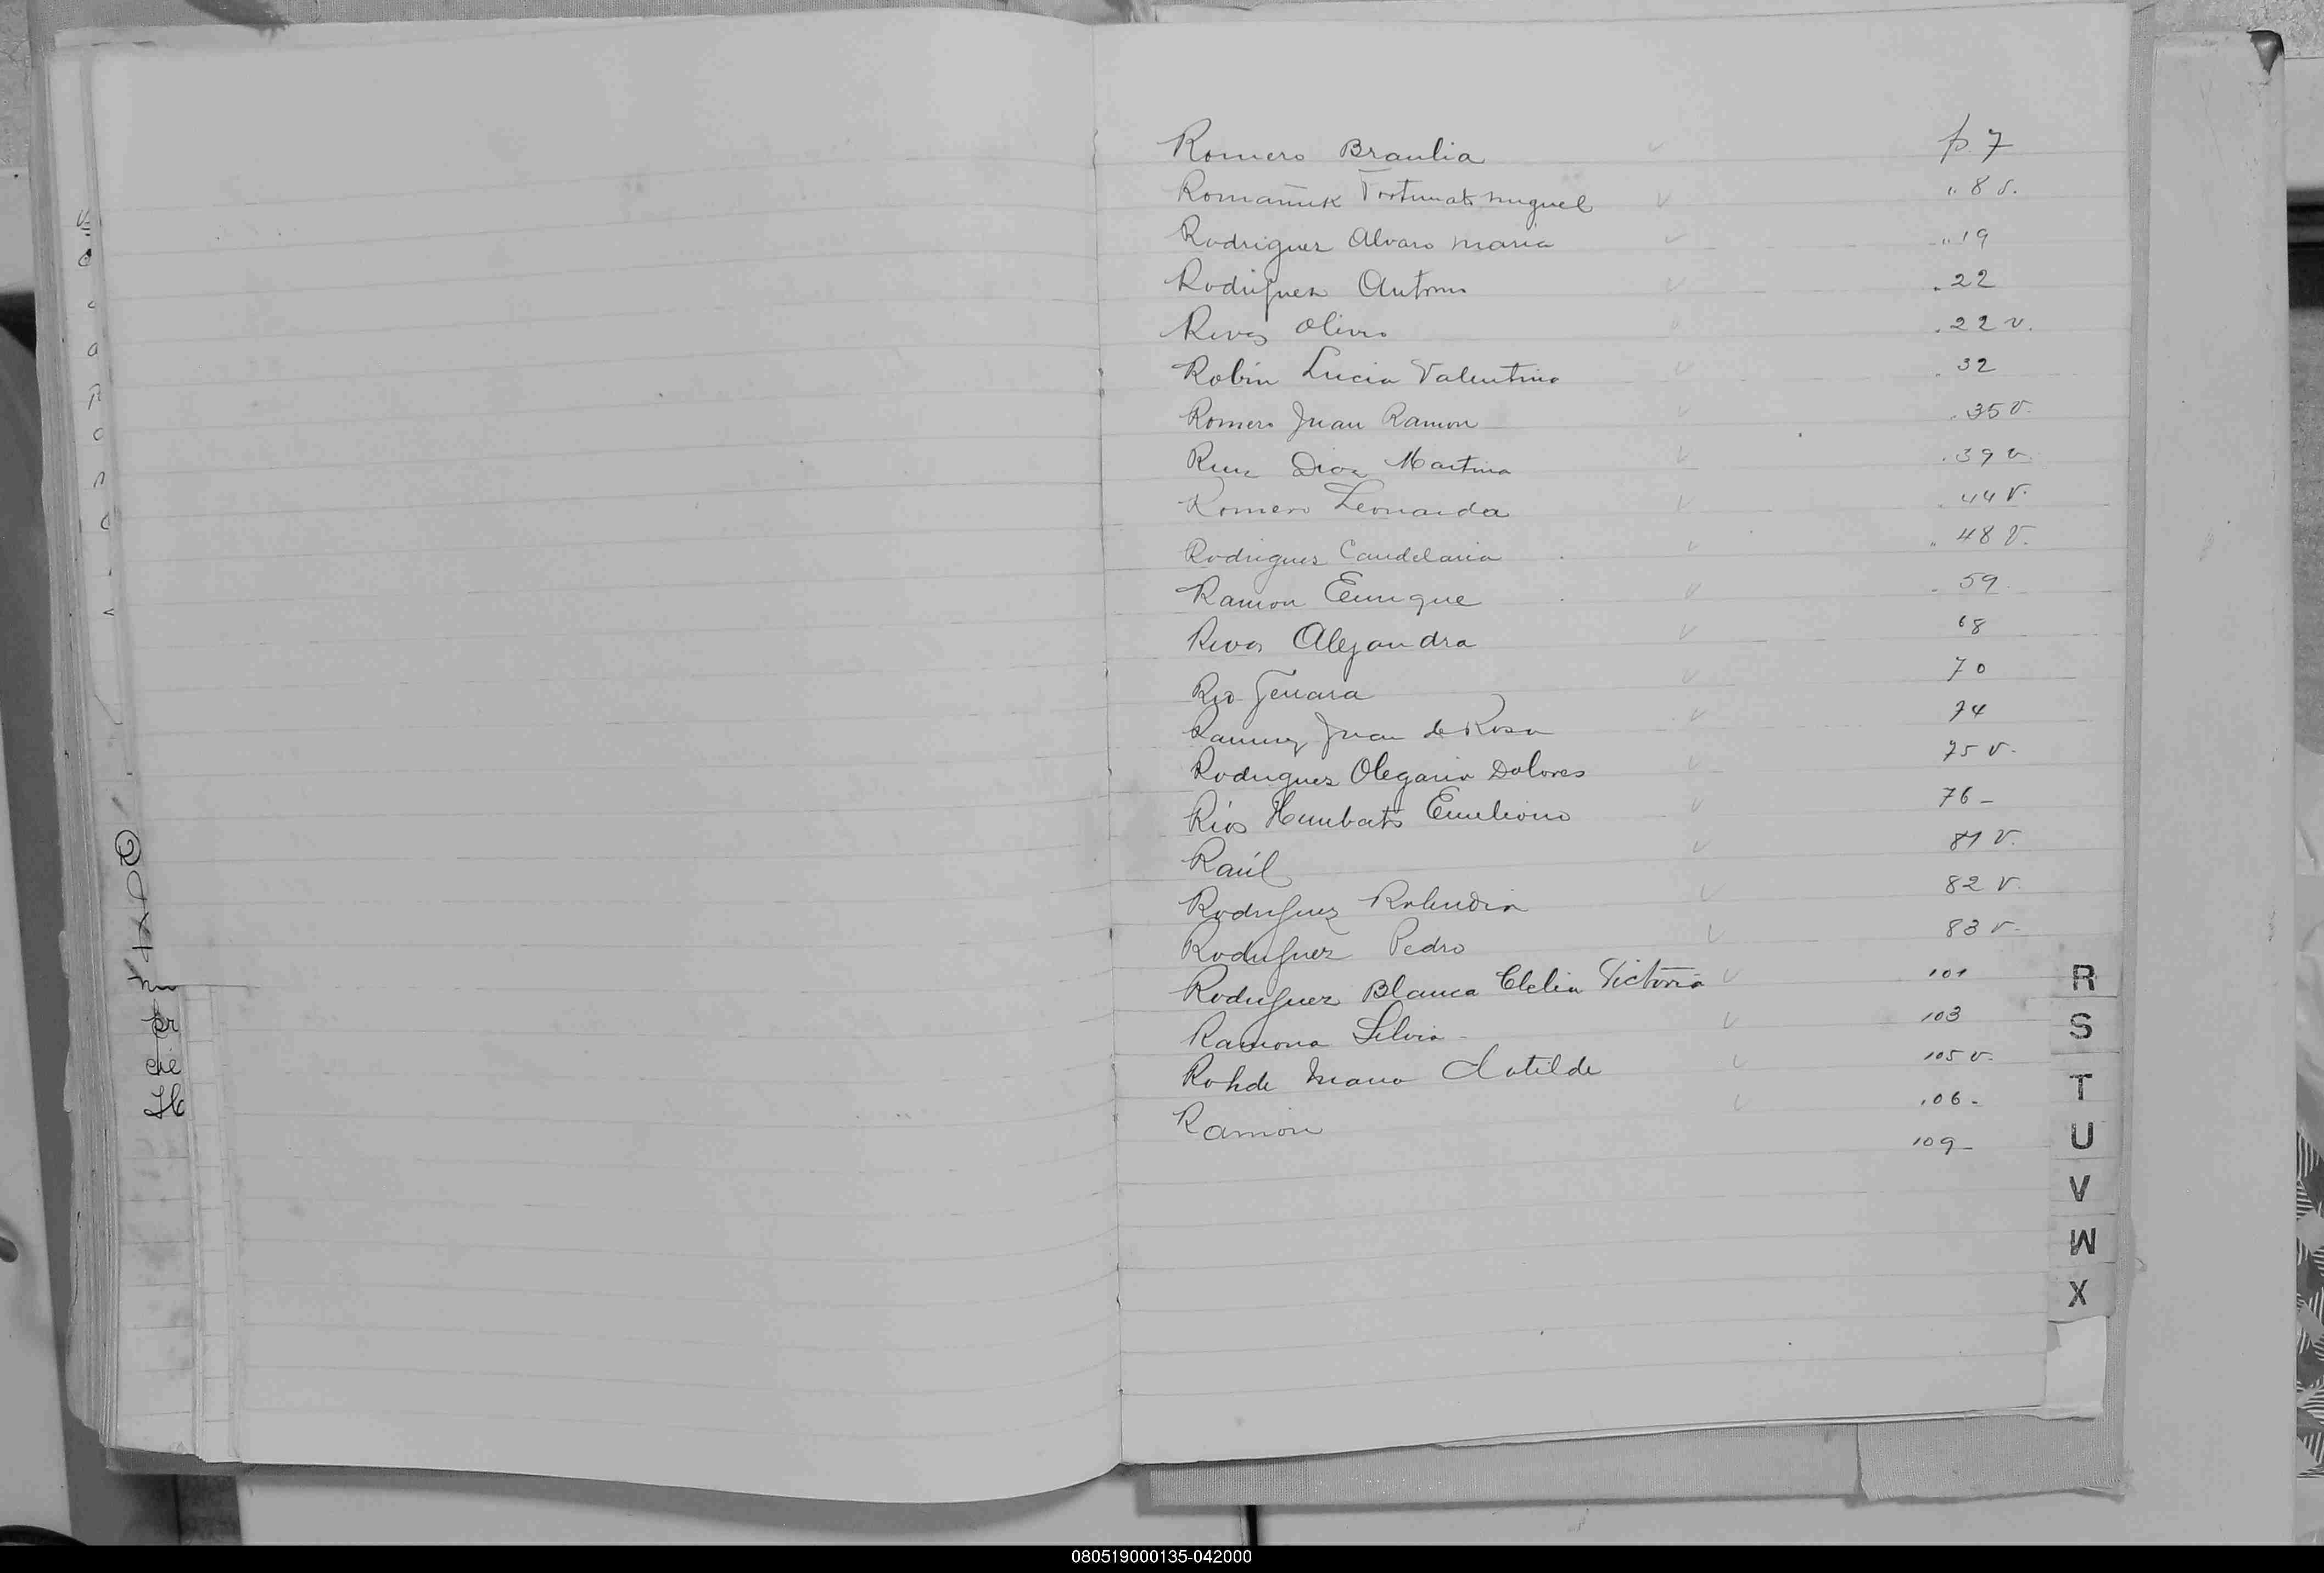 Romero Braulia p. 7
Romañuk Fortunato Miguel " 8 v.
Rodriguez Alvaro Maria " 19
Rodriguez Antonio " 22
Rivas Olivio " 22 v.
Robin Lucia Valentina " 32
Romero Juan Ramon " 35 v.
Ruiz Diaz Martina " 39 v.
Romero Leonarda " 44 v.
Rodriguez Candelaria " 48 v.
Ramon Enrique " 59
Rivas Alejandra 68
Rio Genara 70
Ramirez Juan de Rosa 74
Rodriguez Olegario Dolores 75 v.
Ríos Humberto Emiliano 76 -
Raúl 81 v.
Rodriguez 82 v.
Rodriguez Pedro 83 v.
Rodriguez Blanca Clelia Victoria 101
Ramona Silvia 103
Rohde Maria Clotilde 105 v.
Ramon 106 -
109 -
R
S
T
U
V
W
X
080519000135-042000